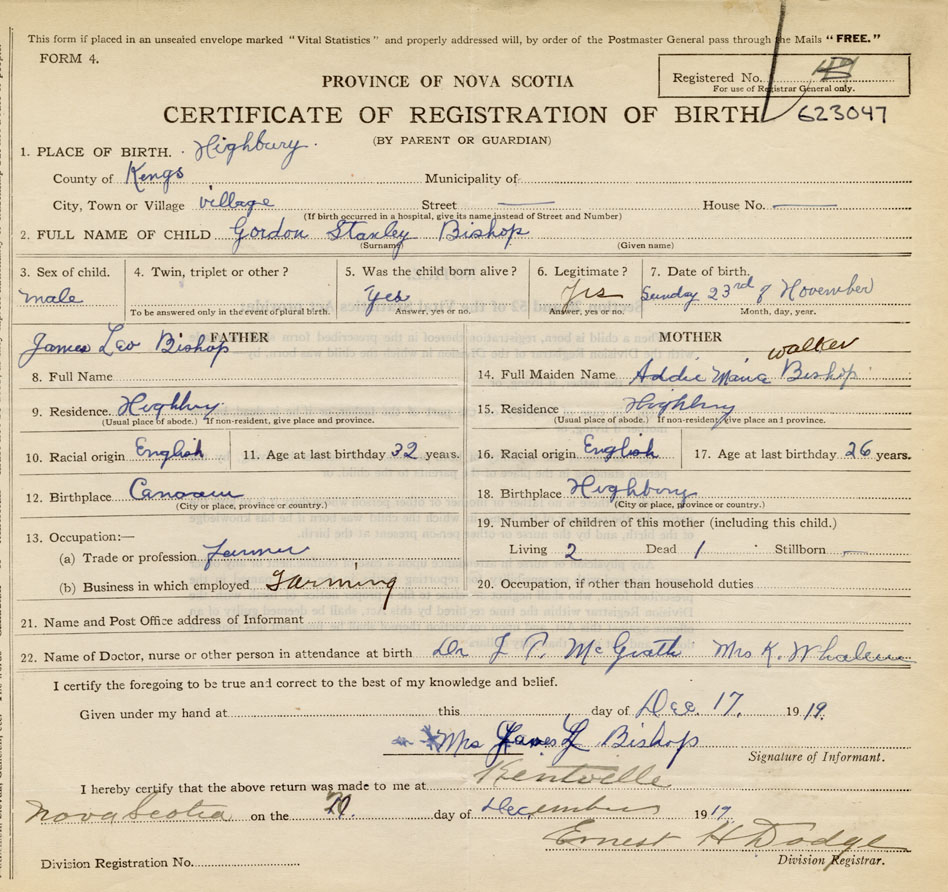 This form if placed in an unsealed envelope marked "Vital Statistics" and properly addressed will, by order of the Postmaster General pass through the Mails "FREE."
FORM 4.
Registered No.
For use of Registrar General only.
PROVINCE OF NOVA SCOTIA
CERTIFICATE OF REGISTRATION OF BIRTH 623047
(BY PARENT OR GUARDIAN)
1. PLACE OF BIRTH. Highbury.
County of Kings Municipality of
City, Town or Village village Street — House No. —
(If birth occurred in a hospital, give its name instead of Street and Number)
2. FULL NAME OF CHILD Gordon Stanley Bishop
(Surname) (Given name)
3. Sex of child. 4. Twin, triplet or other? 5. Was the child born alive? 6. Legitimate? 7. Date of birth.
male Yes Yes Sunday 23rd of November
To be answered only in the event of plural birth. Answer, yes or no. Answer, yes or no. Month, day, year.
FATHER MOTHER
James Leo Bishop walker
8. Full Name 14. Full Maiden Name Addie Maria Bishop
9. Residence. Highbry 15. Residence Highbry
(Usual place of abode.) If non-resident, give place and province. (Usual place of abode.) If non-resident, give place and province.
10. Racial origin English 11. Age at last birthday 32 years. 16. Racial origin English 17. Age at last birthday 26 years.
12. Birthplace 18. Birthplace Highbury
(City or place, province or country.) (City or place, province or country.)
13. Occupation:— 19. Number of children of this mother (including this child.)
(a) Trade or profession Farmer Living 2 Dead 1 Stillborn —
(b) Business in which employed Farming 20. Occupation, if other than household duties
21. Name and Post Office address of Informant
22. Name of Doctor, nurse or other person in attendance at birth Dr J P. McGrath Mrs K. Whalen
I certify the foregoing to be true and correct to the best of my knowledge and belief.
Given under my hand at this day of Dec. 17. 1919.
Mrs James L Bishop
Signature of Informant.
I hereby certify that the above return was made to me at Kentville
Nova Scotia on the day of December 1919
Ernest H Dodge
Division Registration No. Division Registrar.